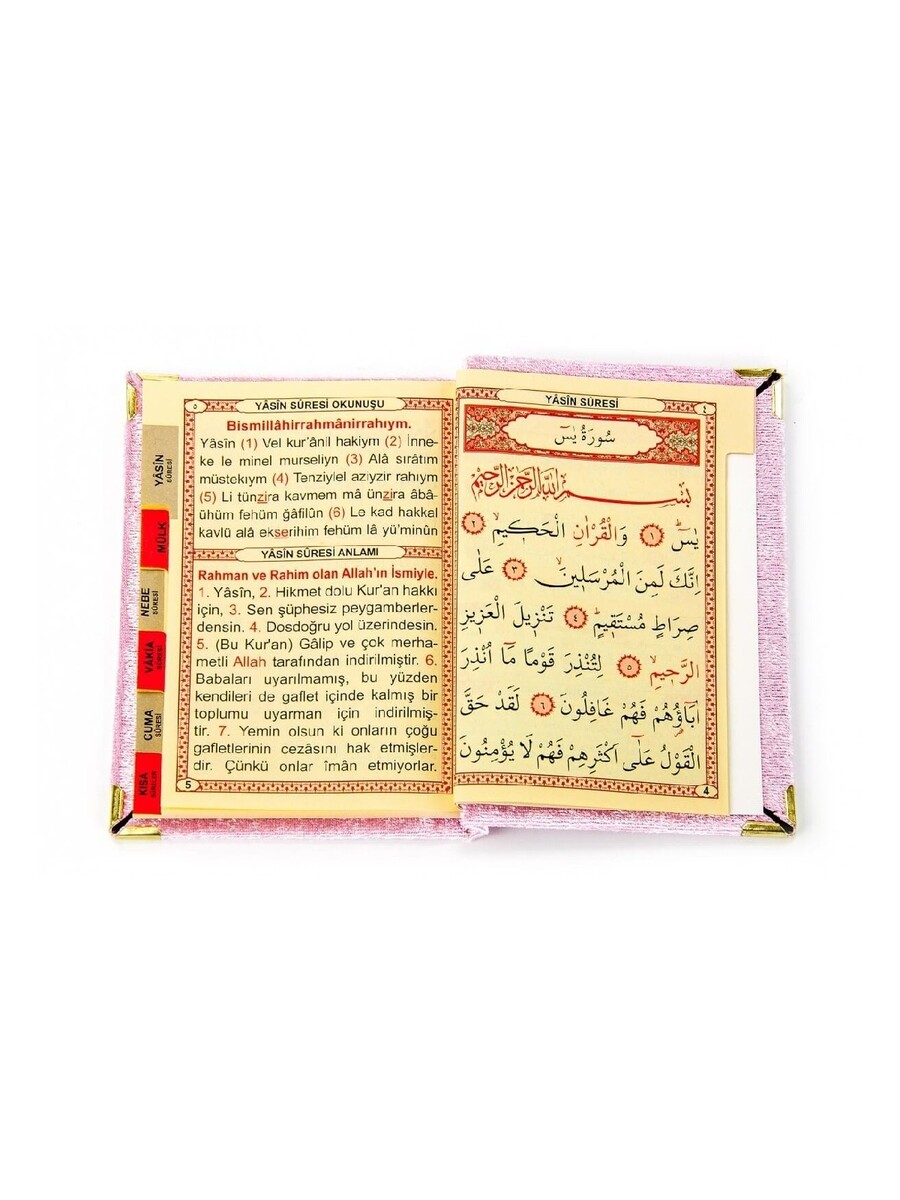 YÂSİN SÛRESİ
٤
سُورَةُ يٰسۤ
بِسْمِ اللّٰهِ الرَّحْمٰنِ الرَّحٖيمِ
يٰسۤ ﴿١﴾ وَالْقُرْاٰنِ الْحَكٖيمِۙ ﴿٢﴾
اِنَّكَ لَمِنَ الْمُرْسَلٖينَۙ ﴿٣﴾ عَلٰى
صِرَاطٍ مُسْتَقٖيمٍؕ ﴿٤﴾ تَنْزٖيلَ الْعَزٖيزِ
الرَّحٖيمِۙ ﴿٥﴾ لِتُنْذِرَ قَوْمًا مَٓا اُنْذِرَ
اٰبَٓاؤُ۬هُمْ فَهُمْ غَافِلُونَ ﴿٦﴾ لَقَدْ حَقَّ
الْقَوْلُ عَلٰٓى اَكْثَرِهِمْ فَهُمْ لَا يُؤْمِنُونَ
4
٥
YÂSİN SÛRESİ OKUNUŞU
Bismillâhirrahmânirrahıym.
Yâsîn (1) Vel kur'ânil hakiym (2) İnne-
ke le minel murseliyn (3) Alâ sırâtım
müstekıym (4) Tenziylel azıyzir rahıym
(5) Li tünzira kavmem mâ ünzira âbâ-
ühüm fehüm ğâfilûn (6) Le kad hakkal
kavlü alâ ekserihim fehüm lâ yü'minûn
YÂSİN SÛRESİ ANLAMI
Rahman ve Rahim olan Allah'ın İsmiyle.
1. Yâsîn, 2. Hikmet dolu Kur'an hakkı
için, 3. Sen şüphesiz peygamberler-
densin. 4. Dosdoğru yol üzerindesin.
5. (Bu Kur'an) Gâlip ve çok merha-
metli Allah tarafından indirilmiştir. 6.
Babaları uyarılmamış, bu yüzden
kendileri de gaflet içinde kalmış bir
toplumu uyarman için indirilmiş-
tir. 7. Yemin olsun ki onların çoğu
gafletlerinin cezâsını hak etmişler-
dir. Çünkü onlar îmân etmiyorlar.
5
YÂSİN
SÛRESİ
MÜLK
NEBE
SÛRESİ
VÂKIA
SÛRESİ
CUMA
SÛRESİ
KISA